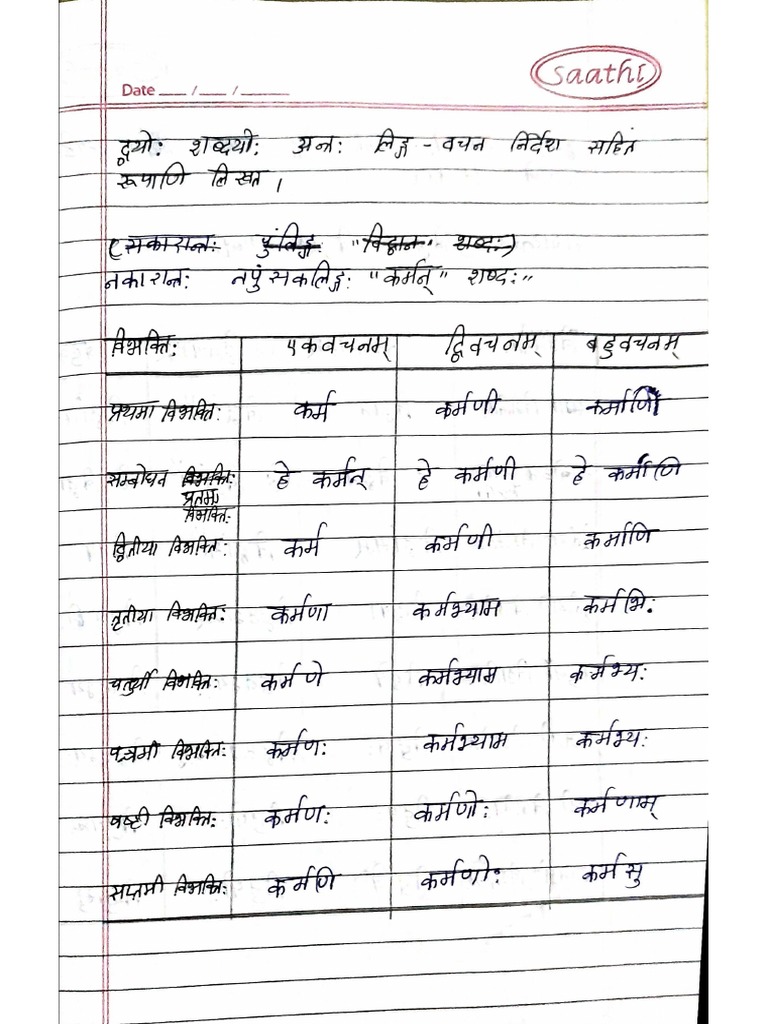 saathi
Date __/__/____
द्वयोः शब्दयोः अन्तः लिङ्ग - वचन निर्देश सहितं
रूपाणि लिखत ।
(सकारान्तः पुंलिङ्गः "विद्वान" शब्दः)
नकारान्तः नपुंसकलिङ्गः "कर्मन्" शब्दः"
विभक्तिः एकवचनम् द्विवचनम् बहुवचनम्
प्रथमा विभक्तिः कर्म कर्मणी कर्माणि
सम्बोधन विभक्तिः हे कर्मन् हे कर्मणी हे कर्माणि
प्रतमा
विभक्तिः
द्वितीया विभक्तिः कर्म कर्मणी कर्माणि
तृतीया विभक्तिः कर्मणा कर्मभ्याम कर्मभिः
चतुर्थी विभक्तिः कर्मणे कर्मभ्याम कर्मभ्यः
पञ्चमी विभक्तिः कर्मणः कर्मभ्याम कर्मभ्यः
षष्टी विभक्तिः कर्मणः कर्मणोः कर्मणाम्
सप्तमी विभक्तिः कर्मणि कर्मणोः कर्मसु